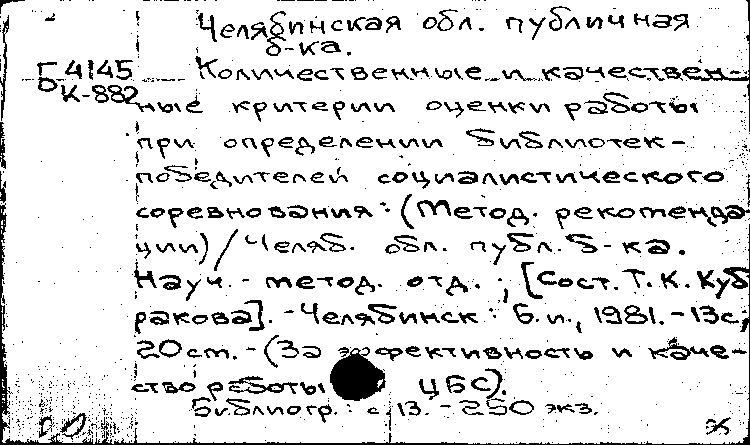 Челябинская обл. публичная
б-ка.
Б 4145
К-882
Количественные и качествен-
ные критерии оценки работы
при определении библиотек-
победителей социалистического
соревнования: (Метод. рекоменда-
ции) / Челяб. обл. публ. б-ка.
Науч.-метод. отд. ; [Сост. Т. К. Куб
ракова]. - Челябинск : Б. и., 1981. - 13с;
20 cm. - (За эффективность и каче-
ство работы ЦБС).
Библиогр.: с. 13. - 250 экз.